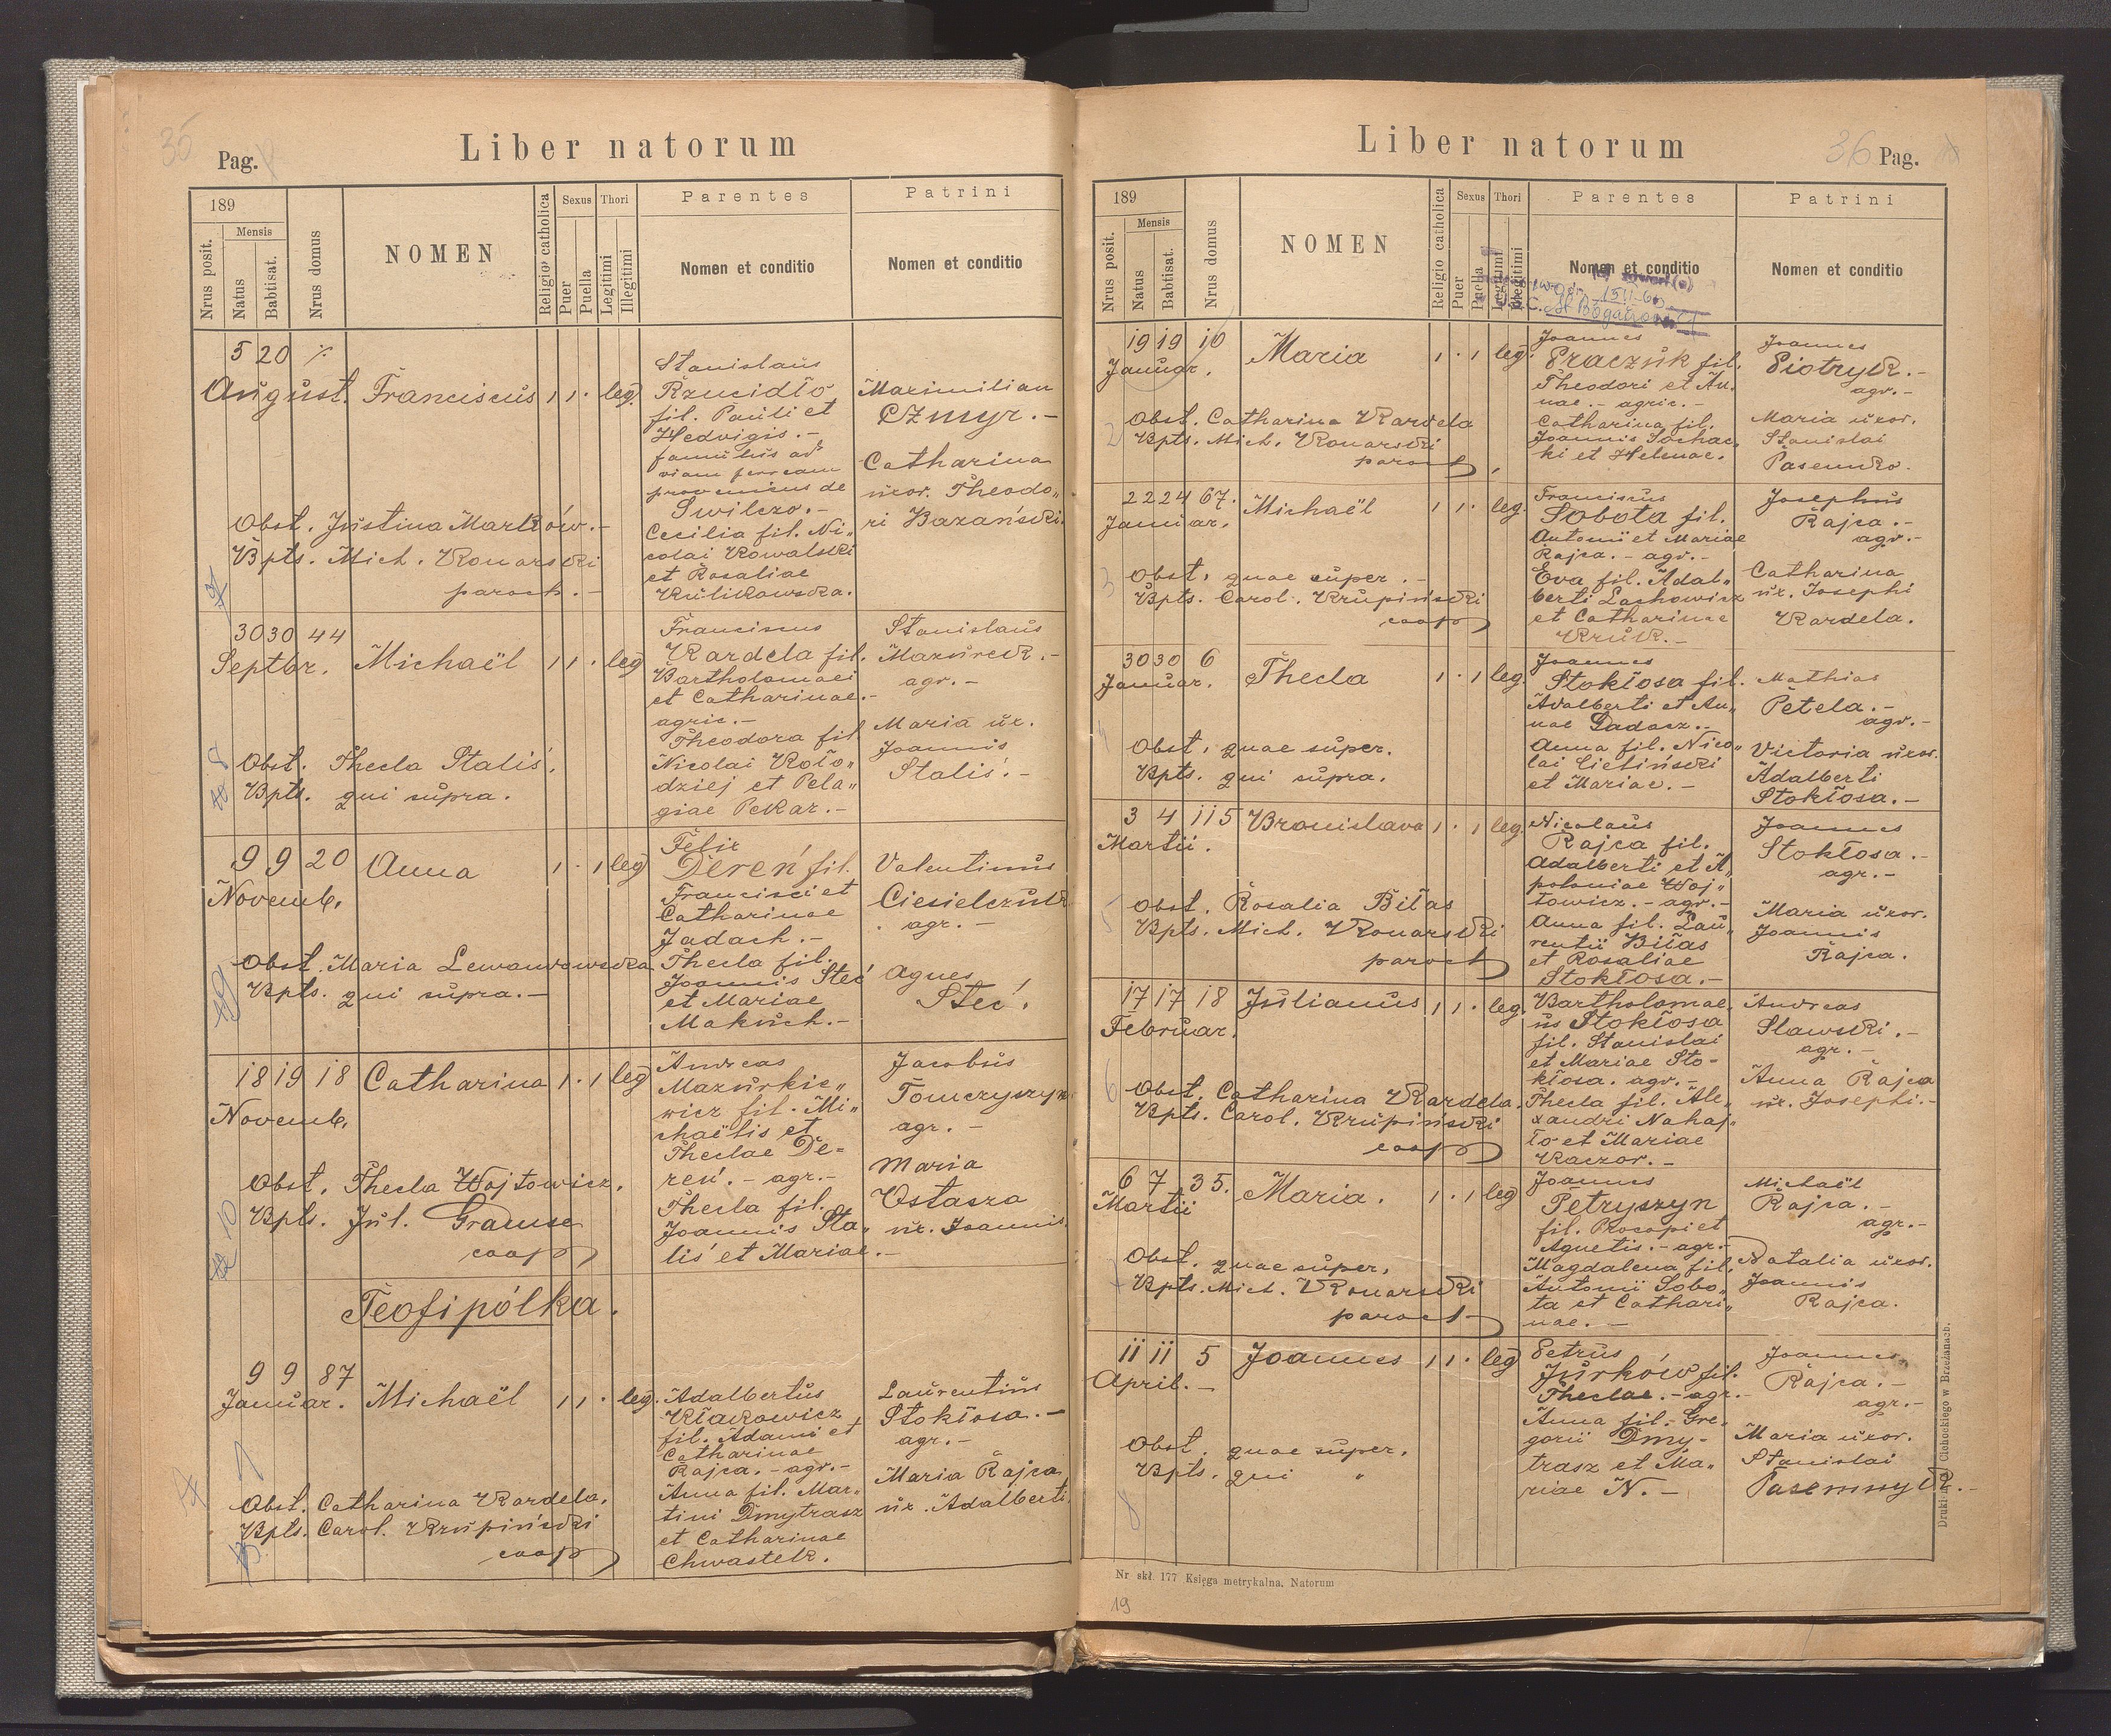 35
Pag.
Liber natorum
189
Nrus posit.
Mensis
Natus
Babtisat.
Nrus domus
NOMEN
Religio catholica
Sexus
Puer
Puella
Thori
Legitimi
Illegitimi
Parentes
Nomen et conditio
Patrini
Nomen et conditio
5 20 ·/.
August. Franciscus 1 1 · leg.
Stanislaus
Rzucidło
fil. Pauli et
Hedvigis. -
famulus ad
viam ferream
proveniens de
Swilcza. -
Cecilia fil. Ni„
colai Kowalski
et Rosaliae
Kulikowska.
Maximilian
Czmyr. -
Catharina
uxor. Theodo„
ri Bazański.
Obst. Justina Marków. -
Bpts. Mich. Konarski
paroch. -
30 30 44
Septbr. Michaël 1 1 · leg
Franciscus
Kardela fil.
Bartholomaei
et Catharinae. -
agric. -
Theodora fil
Nicolai Koło„
dziej et Pela„
giae Pekar. -
Stanislaus
Mazurek. -
agr. -
Maria ux.
Joannis
Stalis. -
8
Obst. Thecla Stalis.
Bpts. qui supra.
9 9 20 Anna 1 · 1 leg
Novemb.
Felix
Dereń fil.
Francisci et
Catharinae
Jadach. -
Thecla fil.
Joannis Steć
et Mariae
Makuch. -
Valentinus
Ciesielczuk
agr. -
Agnes
Steć.
9
Obst. Maria Lewandowska
Bpts. qui supra. -
18 19 18 Catharina 1 · 1 leg
Novemb.
Andreas
Mazurkie„
wicz fil. Mi„
chaëlis et
Theclae De=
reń. - agr. -
Thecla fil.
Joannis Sta„
lis et Mariae. -
Jacobus
Tomczyszyn
agr. -
Maria
Ostasza
ux. Joannis.
10
Obst. Thecla Wojtowicz.
Bpts. Jul. Gramse
coop
Teofipólka.
9 9 87
Januar. Michaël 1 1 · leg.
Adalbertus
Kłakowicz
fil. Adami et
Catharinae
Rajca. - agr. -
Anna fil. Mar„
tini Dmytrasz
et Catharinae
Chwastek.
Laurentius
Stokłosa. -
agr. -
Maria Rajca
ux. Adalberti.
1
Obst. Catharina Kardela.
Bpts. Carol. Krupiński
coop
Liber natorum
36
Pag.
189
Nrus posit.
Mensis
Natus
Babtisat.
Nrus domus
NOMEN
Religio catholica
Sexus
Puer
Puella
Thori
Legitimi
Illegitimi
Parentes
Nomen et conditio
Patrini
Nomen et conditio
19 19 10
Januar. Maria 1 · 1 leg.
Joannes
Praczuk fil.
Theodori et An„
nae. - agric. -
Catharina fil.
Joannis Sochac„
ki et Helenae.
Joannes
Piotryk. -
agr. -
Maria uxor.
Stanislai
Pasemko.
2
Obst. Catharina Kardela
Bpts. Mich. Konarski
paroch
22 24 67. Michaël 1 1 · leg.
Januar.
Franciscus
Sobota fil.
Antonii et Mariae
Rajca. - agr. -
Eva fil. Adal„
berti Lachowicz
et Catharinae
Kruk. -
Josephus
Rajca. -
agr. -
Catharina
ux. Josephi
Kardela.
3
Obst. quae super. -
Bpts. Carol. Krupiński
coop
30 30 6 Thecla 1 · 1 leg.
Januar.
Joannes
Stokłosa fil.
Adalberti et An„
nae Gadacz. -
Anna fil. Nico„
lai Cieliński
et Mariae. -
Mathias
Petela. -
agr. -
Victoria uxor.
Adalberti
Stokłosa. -
4
Obst. quae super.
Bpts. qui supra.
3 4 115 Bronislava 1 · 1 leg.
Martii.
Nicolaus
Rajca fil.
Adalberti et A„
poloniae Woj„
towicz. - agr. -
Anna fil. Lau„
rentii Biłas
et Rosaliae
Stokłosa. -
Joannes
Stokłosa. -
agr. -
Maria uxor.
Joannis
Rajca.
5
Obst. Rosalia Biłas
Bpts. Mich. Konarski
paroch
17 17 18 Julianus 1 1 · leg.
Februar.
Bartholomae„
us Stokłosa
fil. Stanislai
et Mariae Sto-
kłosa. agr. -
Thecla fil. Ale„
xandri Nahaj„
ło et Mariae
Kaczor. -
Andreas
Slawski. -
agr. -
Anna Rajca
ux. Josephi. -
6
Obst. Catharina Kardela.
Bpts. Carol. Krupiński
coop
6 7 35. Maria. 1 · 1 leg
Martii
Joannes
Petryszyn
fil. Procopi et
Agnetis. - agr. -
Magdalena fil.
Antonii Sobo„
ta et Cathari„
nae. -
Michaël
Rajca. -
agr. -
Natalia uxor.
Joannis
Rajca.
Obst. quae super.
Bpts. Mich. Konarski
paroch
11 11 5 Joannes 1 1 · leg
April. -
Petrus
Jurków fil.
Theclae. - agr. -
Anna fil. Gre„
gorii Dmy-
trasz et Ma„
riae N. -
Joannes
Rajca. -
agr. -
Maria uxor.
Stanislai
Pasemnyk. -
8
Obst. quae super.
Bpts. qui „
Nr skł. 177 Księga metrykalna, Natorum
19
Cichockiego w Brzeżanach.